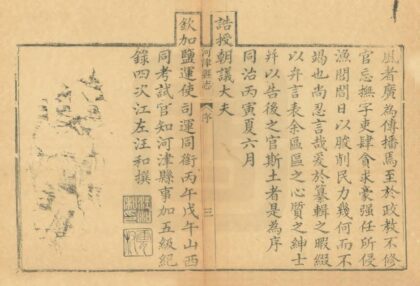 風者廣為傳播焉至於政教不修
官忘撫字吏肆貪求豪强任所侵
漁閭閻日以朘削民力幾何而不
竭也尚忍言哉爰於纂輯之暇綴
以弁言表余區區之心質之紳士
并以告後之官斯土者是為序
同治丙寅夏六月
誥授朝議大夫
河津縣志
序
三
欽加鹽運使司運同銜丙午戊午山西
同考試官知河津縣事加五級紀
錄四次江左汪和撰